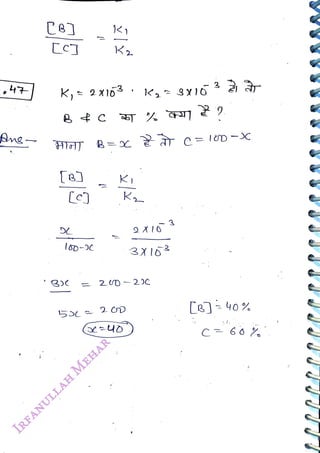 [B] / [C] = K₁ / K₂
.47 K₁ = 2 X10⁻³ , K₂ = 3X10⁻³ हो तो
B & C का % क्या है ?
Ans - माना B = x है तो C = 100 - X
[B] / [C] = K₁ / K₂
x / 100-x = 2 X 10⁻³ / 3X 10⁻³
3x = 200 - 2x
5x = 200 [B] = 40 %
x = 40 C = 60 %
IRFANULLAH MEHAR